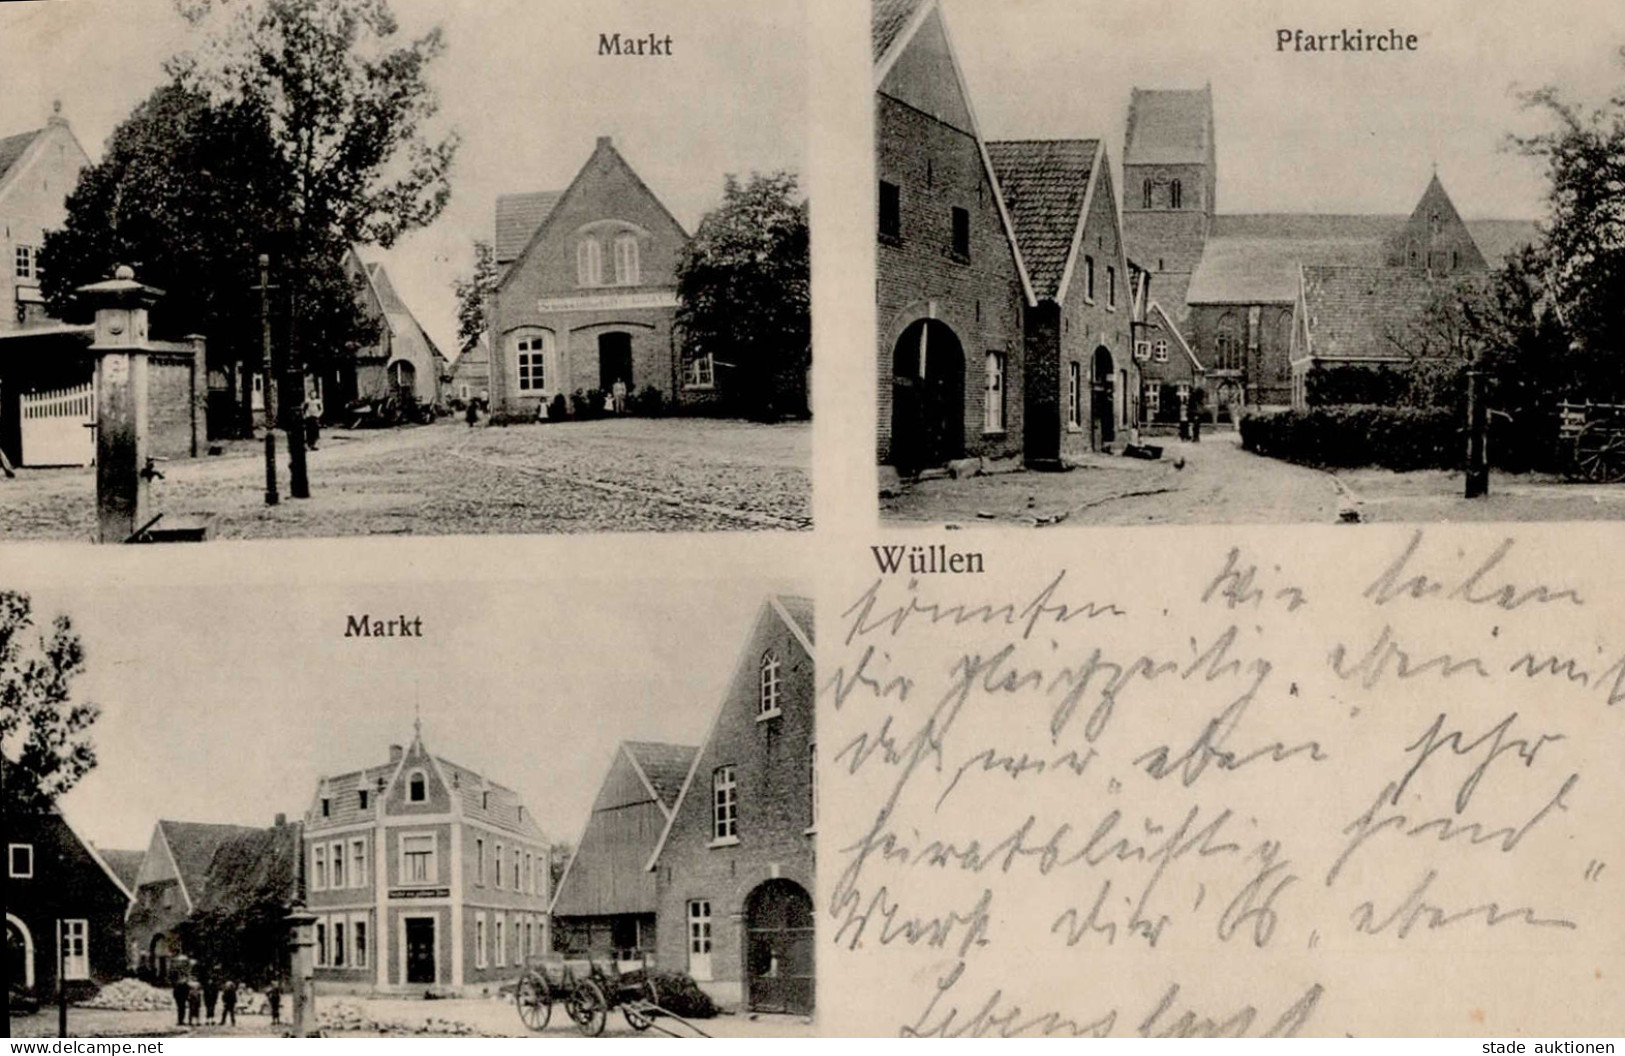 Markt
Pfarrkirche
Markt
Wüllen
könnten. Wir teilen
dir gleichzeitig, eben mit
daß wir "eben sehr
heiratslustig sind"
Merk dir's "eben
Lebenslauf.
www.delcampe.net
stade auktionen